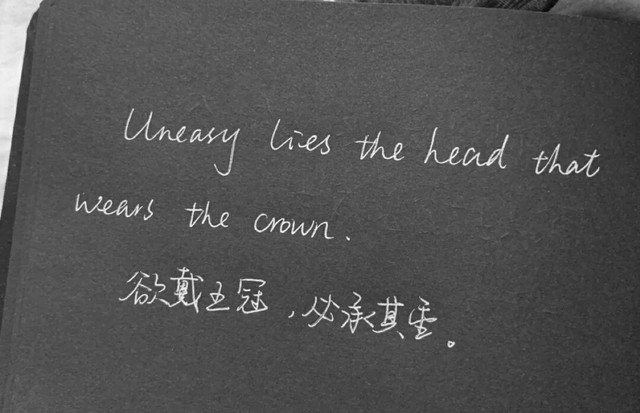 Uneasy lies the head that
wears the crown.
欲戴王冠,必承其重。